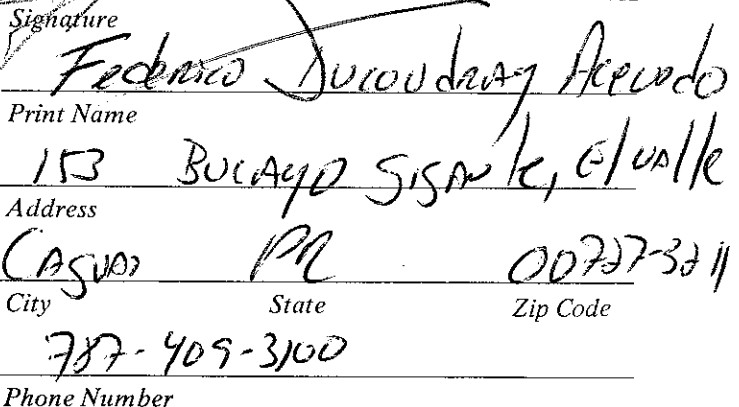 Signature
Federico Ducoudray Acevedo
Print Name
153 Bucayo Gigante, El Valle
Address
Caguas PR 00727-3211
City State Zip Code
787-409-3100
Phone Number